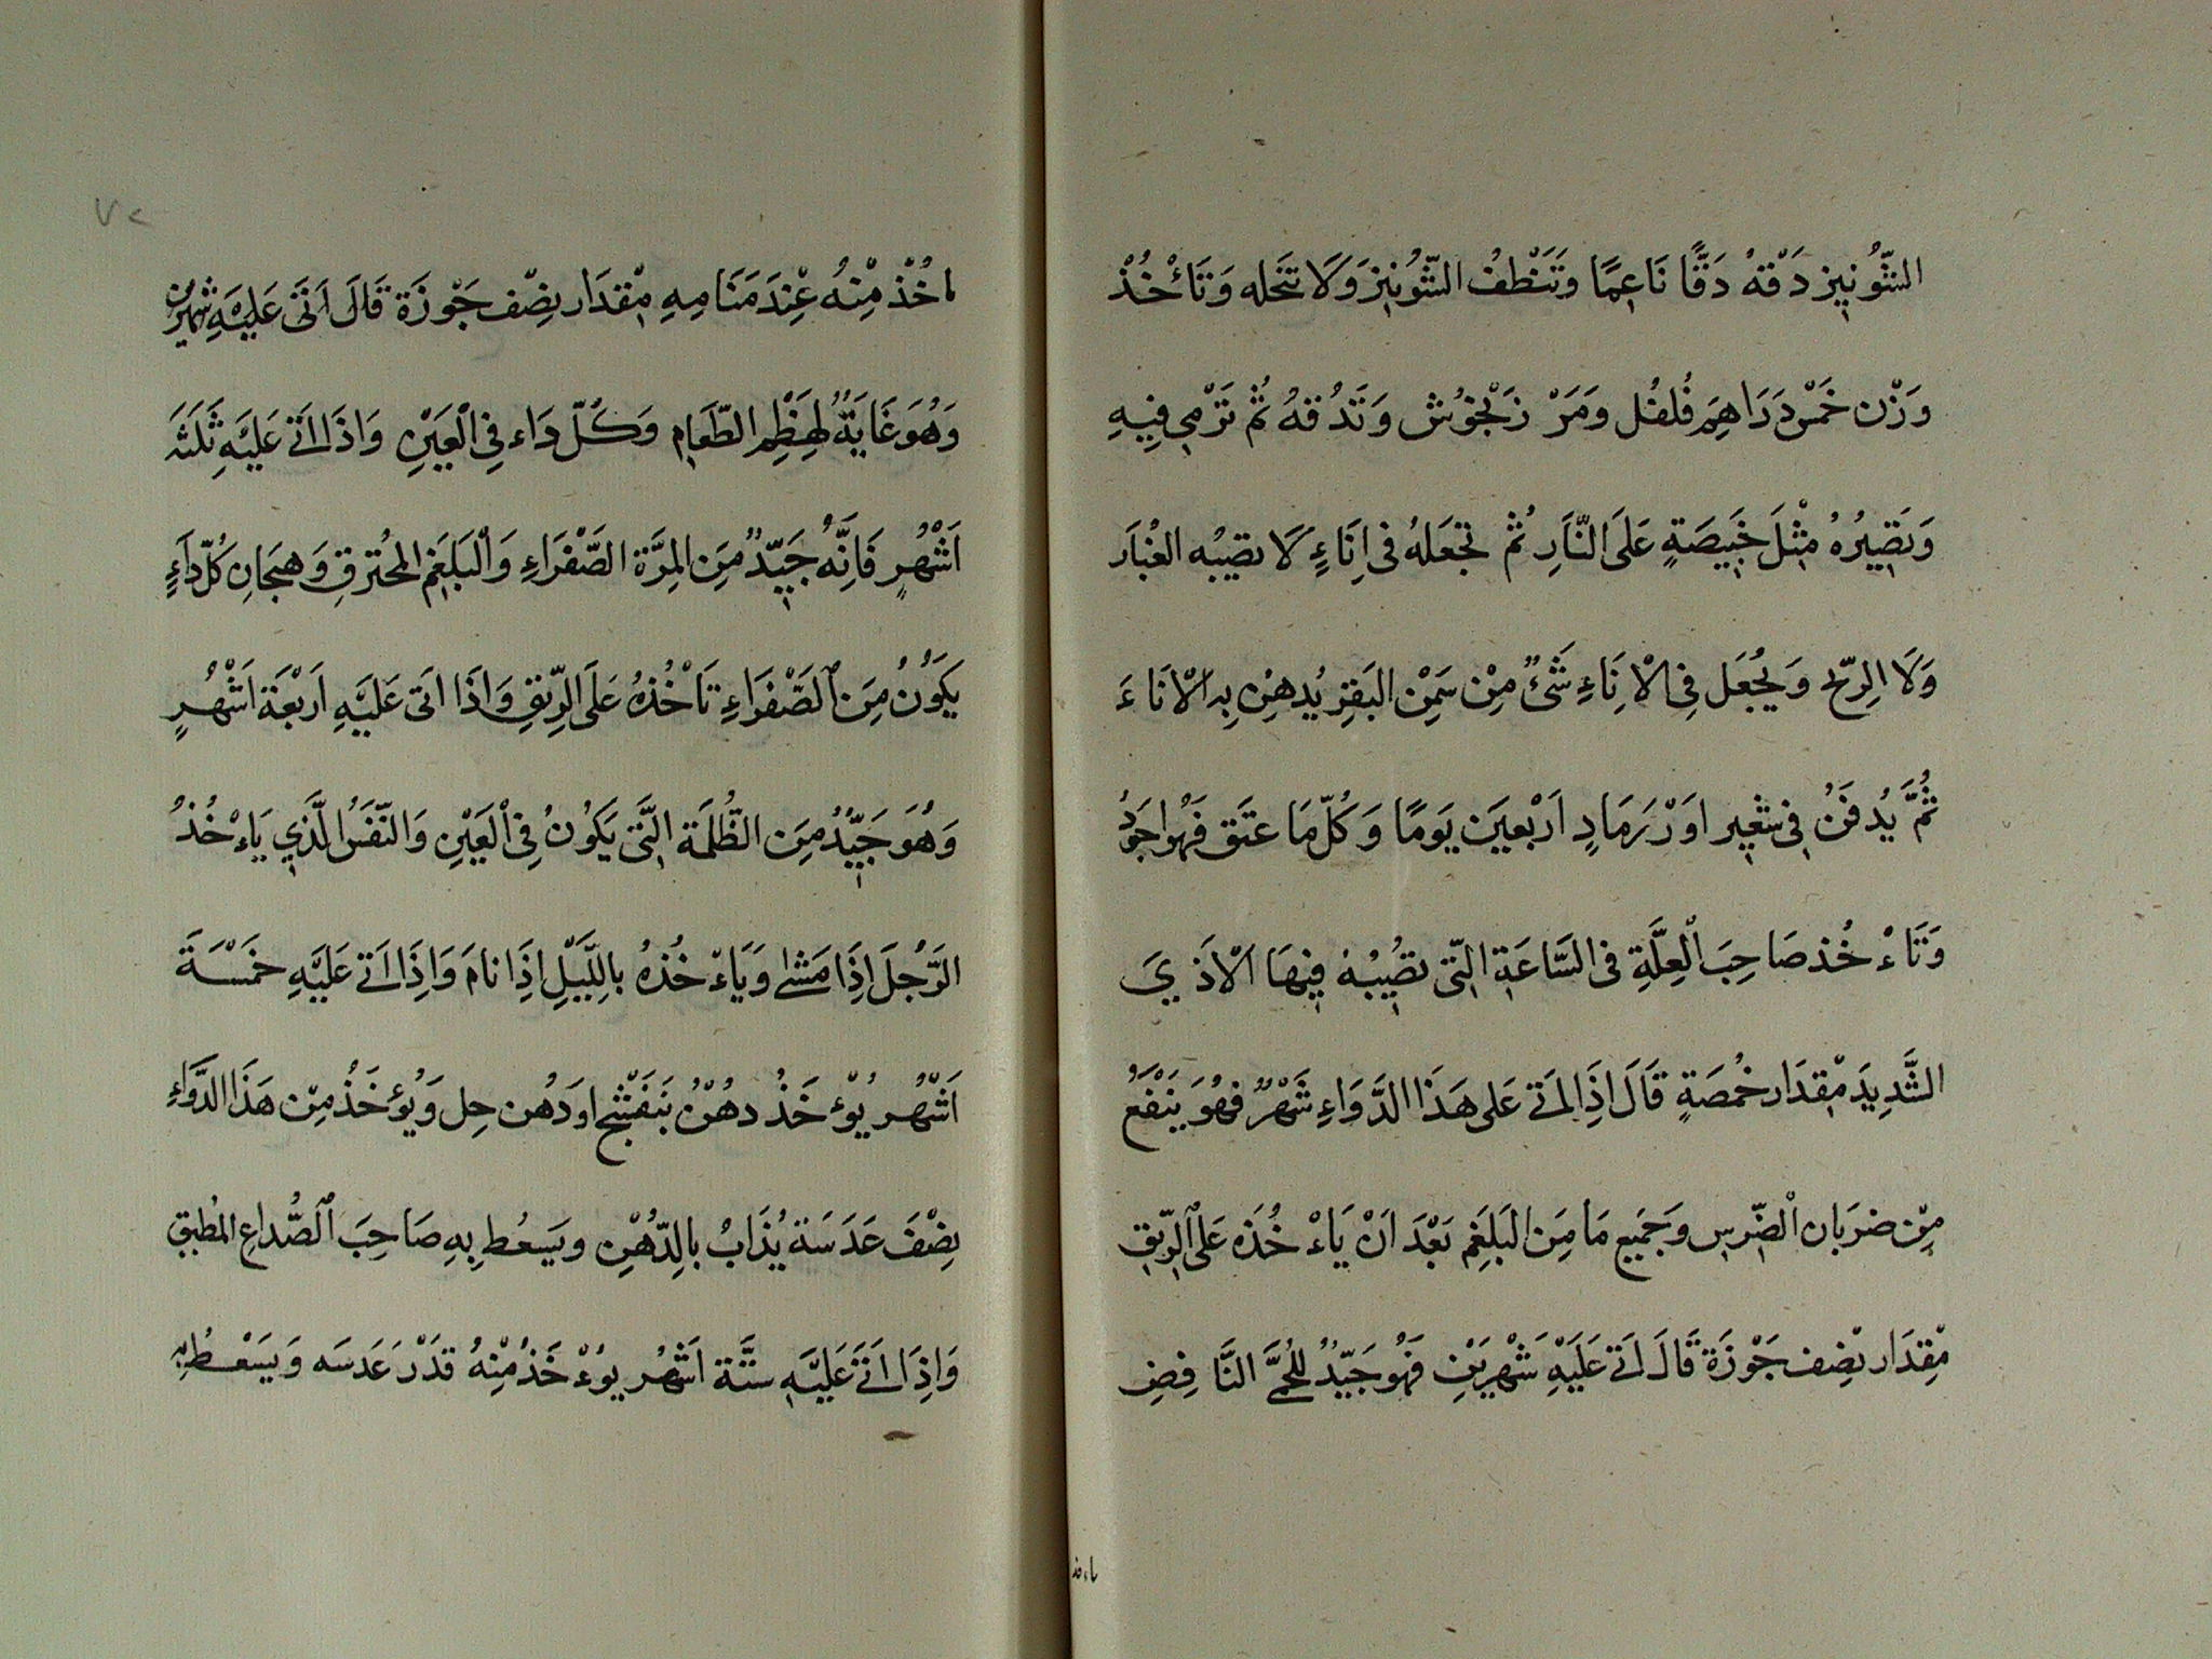 الشُّونِيز دَقَّهُ دَقًّا نَاعِمًا وَتَنْظفُ الشُّونِيزَ وَلَا تنَخله وَتَأْخُذْ
وَزْن خَمْس دَرَاهِمَ فُلفُل وَمَرْ زَنْجُوُش وَتَدُقهُ ثُمْ تَرْمِي فِيهِ
وَتَصِيرُهُ مْثِلَ خَبِيصَةٍ عَلَى النَّارِ ثُمْ تجْعَلهُ فى اِنَاءٍ لَا يصيْبُه الغُبَار
وَلَا الرِيّح وَيُجْعَل فِى الْاِنَاءِ شَئٌ مِنْ سَمِنْ البَقِر يُدهِنُ بِه اَلْانَاءَ
ثُمَّ يُدفَنُ فِى شَعِير اوَرْ رَمَادٍ اَرْبعِيَن يَومًا وَكُلّ مَا عتَق فَهُو اجوَدُ
وَتَاءْخُذ صَاحِبَ الْعِلَّةِ فى السَّاعَةِ الَّتِى تصُيْبُهُ فِيهَا الْاَذيَ
الشَّدِيدَ مْقِدَار حُمُصَةٍ قَالَ اِذَا اَتَى عَلى هَذَا الدَّوَاءِ شَهْرٌ فهُوَ يَنْفَعُ
مِنْ ضرَبَان الْضِّرسِ وجَمَيِع مَا مِنَ الْبَلغَمِ بَعْدَ اَنْ يَاءْخُذَه عَلى الرِّيقِ
مْقِدَار نصِف جَوْزَة قَالَ اَتَى عَلَيْهِ شَهْرَيْنِ فَهُو جَيّدٌ للحُمَّى النَّافِضِ
ياءخذ
٧٢
اخُذْ مِنْهُ عِنْدَ مَنَامِهِ مِقدَار نِصْف جَوْزَة قَالَ اَتَى عَلَيْهِ شَهْرَيْن
وَهُوَ غَايَةٌ لِهضْمِ الطّعَامِ وَكُلّ دَاء فِى الْعَيْنِ وَاذَا اَتَى عَلَيْهِ ثَلَثَة
اَشْهُرٍ فَاِنَّهُ جَيّدٌ مِنَ المِرَّة الصَّفْرَاءِ وَالْبَلغَمِ المحُترقِ وَهيَجَانِ كُلّ دَاءٍ
يَكوُنُ مِنَ الصَّفرَاءِ تَاْخُذهُ عَلَى الرِّيقِ وَاذَا اَتى عَلَيْهِ اَرْبَعَة اَشْهُرٍ
وَهُوَ جَيّدٌ مِنَ الظُّلمَة الَّتى يَكوُنُ فِى الْعَيْنِ وَالنّفَسُ الَّذِي يَاءْخُذُ
الرَّجُلَ اِذَا مَشٰى وَيَاءْخُذهُ بِالَّليْلِ اِذَا نامَ وَاِذَا اَتى عَلَيْهِ خَمْسَةَ
اَشْهُر يُؤْخَذُ دهُنْ بَنَفْسَجْ او دُهْن حِل وَيُؤخَذُ مِنْ هَذَا الدَّوَاءِ
نِصْفَ عَدَسَة يُذَابُ بِالدّهُنِ ويَسعُط بِهِ صَاحِبَ الصُّدَاعِ المُطبقِ
وَاِذَا اَتَى عَلَيْهِ ستَّة اَشْهُر يُوْءخَذُ مِنْهُ قَدْر عَدسَه وَيَسْعُط بِهِ